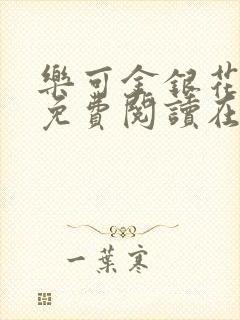 樂可金銀花
免費閱讀在
一葉寒